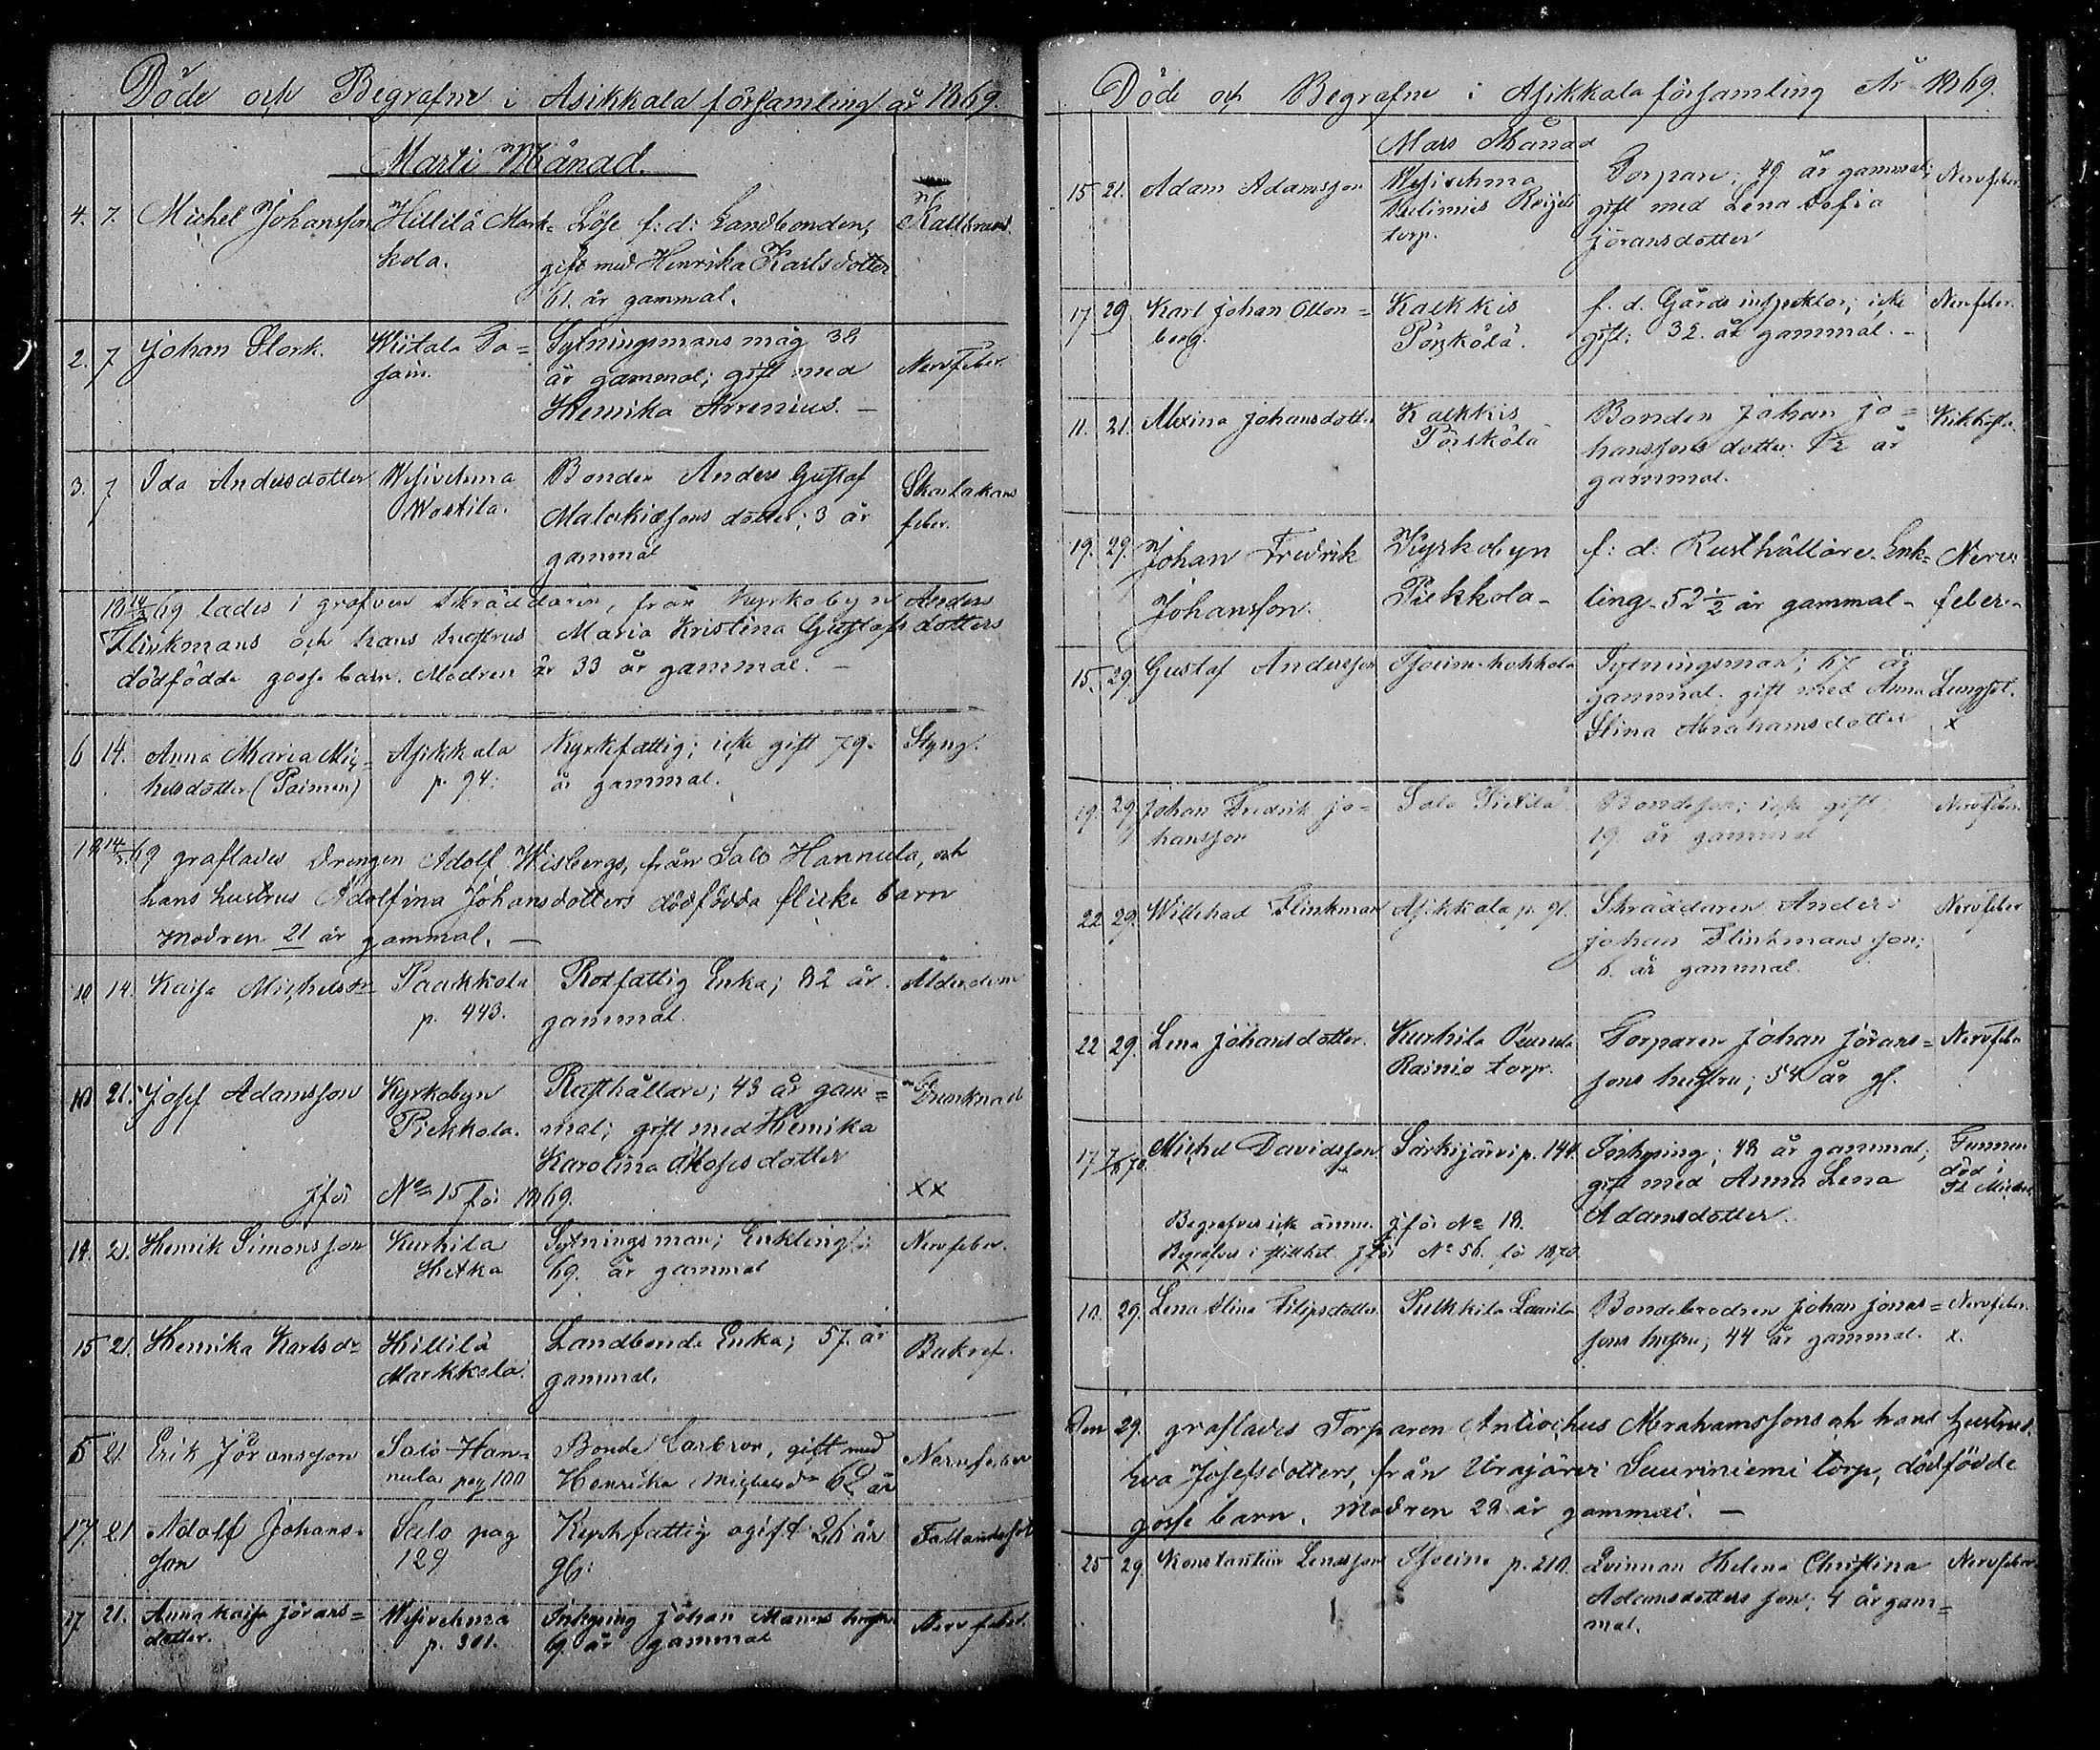 Döde och Begrafne i Asikkala församling år 1869.
Marti Månad.
4. 7. Michel Johansson Hillilä Mark= Löse f: d: Landbonden, Kallbrand
kola. gift med Henrika Karlsdotter
61. år gammal.
2. 7 Johan Stork. Wiitala Sytningsmans måg 38
år gammal; gift med Nervfeber.
Henrika Arrenius. –
3. 7 Ida Andersdotter Wesivehma Bonden Anders Gustaf Skarlakans
Wostila. dotter; 3 år feber.
gammal
18 14/3 69 lades i grafven skräddaren, från Kyrkobyn Anders
Flinkmans och hans hustrus Maria Kristina Gustafsdotters
dödfödda gosse barn. Modren är 33 år gammal. –
6 14. Anna Maria Mic= Asikkala Kyrkfattig; icke gift 79. Styng.
helsdotter (Paimen) p. 94. år gammal.
18 14/3 69 graflades drengen Adolf Wisbergs, från Salo Hannula, och
hans hustrus Adolfina Johansdotters dödfödda flicke barn
Modren 21 år gammal. –
10 14. Kaisa Michelsdr Paakkola Rotfattig Enka; 82 år Ålderdom
p. 443. gammal.
21. Josef Adamsson Kyrkobyn Rusthållare; 43 år gam= Drunknad
Piekkola. mal; gift med Henrika
Karolina Mosesdotter
jför No 15 för 1869. xx
14. 21. Henrik Simonsson Kurhila Sytningsman; Enkling; Nervfeber.
Hietka 69. år gammal
15 21. Henrika Karlsdr Hillilä Landbonde Enka; 57. år Bukref.
Markkola. gammal.
5 21. Erik Jöransson Salo Han= Bonde, gift med Nervfeber
nula pag 100 Henrika Michelsdr 62 år
17. 21 Adolf Johans= Salo pag Kyrkfattig ogift 26 år Fallandesot
son 129 gl:
17. 21. Anna Kaisa Jörans= Wesivehma Inhysing Johan Manns hustru Nervfeber.
dotter. p. 301. 69. år gammal
Döde och Begrafne i Asikkala församling År 1869.
Mars Månad
15 21. Adam Adamsson Wesivehma Torpare; 49 år gammal; Nervfeber.
gift med Lena Sofia
torp. Jöransdotter
17 29 Karl Johan Otton= Kalkkis f. d. Gårds inspektor; icke Nervfeber.
berg. Pörskölä. gift; 32. år gammal. –
11. 21. Alexina Johansdotter Kalkkis Bonden Johan Jo= Kikhosta.
Pörskölä hanssons dotter 1½ år
gammal.
19. 29. Johan Fredrik Kyrkobyn f: d: Rusthållare. Enk= Nerv
Johansson. Piekkola – ling. 52½ år gammal – feber. –
15. 29 Gustaf Andersson Sytningsman; 67 år
gammal. gift med Anna Lungsot.
Stina Abrahamsdotter x
19. 29 Johan Fredrik Jo= Salo Pietilä Bondeson; icke gift Nervfeber.
hansson 19. år gammal
22 29. Willehad Flinkman Asikkala p. 91. Skräddaren Anders Nervfeber
Johan Flinkmans son;
6. år gammal.
22 29. Lena Johansdotter. Kurhila Torparen Johan Jörans= Nervfeber
Rainio torp. sons hustru; 54 år gl.
17 7/8 70. Michel Davidsson Särkijärvi p. 144. Inhysing; 48 år gammal; Funnen
gift med Anna Lena död i
Adamsdotter. St Michel
Begrafves icke ännu. Jför No 18.
Begrafves i stillhet. Jför No 56. för 1870.
10. 29. Lena Stina Filipsdotter. Pulkkila Laurila Bondebrodren Johan Jonas= Nervfeber.
sons hustru; 44 år gammal. x.
Den 29. graflades Torparen Antiochus Abrahamssons och hans hustrus
Eva Josefsdotters, från Urajärvi Sauriniemi torp, dödfödde
gosse barn. Modren 28 år gammal. –
25 29 Konstantin Lenasson p. 210. Qvinnan Helena Christina Nervfeber
Adamsdotters son; 4 år gam=
mal.